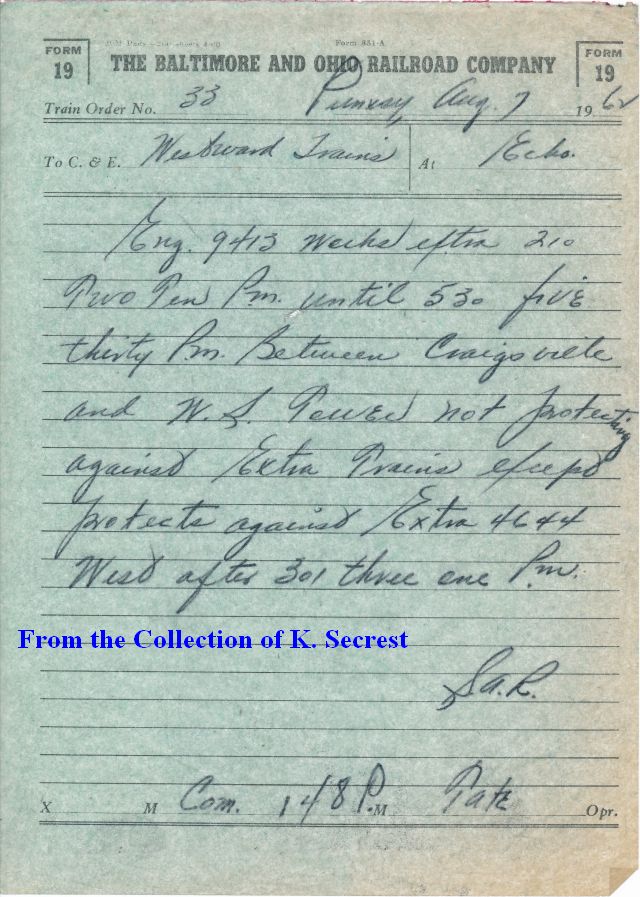 FORM 19
Form 831-A
THE BALTIMORE AND OHIO RAILROAD COMPANY
FORM 19
Train Order No. 33 Punxsy, Aug. 7 1962
To C. & E. Westward Trains At Echo.
Eng. 9413 works extra 210
Two Ten Pm. until 530 five
thirty Pm. Between Craigsville
and W.S. Tower not protecting
against Extra Trains except
protects against Extra 4644
West after 301 three one Pm.
From the Collection of K. Secrest
S.A.R.
X M Com. 148 P. M Tate Opr.